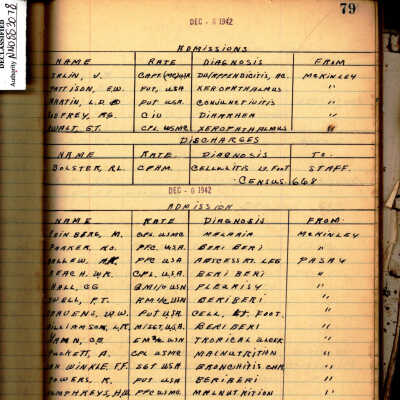 DECLASSIFIED
Authority NND 883078
79
DEC - 5 1942
ADMISSIONS
NAME RATE DIAGNOSIS FROM
V. CAPT. (MC) USA DU/APPENDICITIS, AC. MCKINLEY
PATTISON, E.W. PVT. USA XEROPHTHALMUS "
MARTIN, L.D. PVT USA. CONJUNCTIVITIS "
R.G. CIV DIARRHEA "
E.T. CPL USMC XEROPHTHALMUS "
DISCHARGES
NAME RATE. DIAGNOSIS TO.
BOLSTER, R.L. CPHM. CELLULITIS FOOT STAFF.
CENSUS 668
DEC - 6 1942
ADMISSION
NAME RATE DIAGNOSIS FROM
M. CPL USMC MALARIA MCKINLEY
PARKER, R.O. PFC. U.S.A. BERI BERI "
PFC USA ABSCESS RT. LEG PASAY
CPL. U.S.A. BERI BERI "
HALL, C.G. GM1/C USN PLEURISY "
F.T. RM1/C USN BERIBERI "
W.W. PVT USA CELL. FOOT. "
WILLIAMSON, L.R. M/SGT. U.S.A. BERIBERI "
EM3/C USN TROPICAL ULCER "
PUCKETT, A. CPL USMC MALNUTRITION "
VAN WINKLE, F.F. SGT USA BRONCHITIS CHR. "
POWERS, R. PVT USA BERIBERI "
HUMPHREYS, H.W. PFC USMC MALNUTRITION "